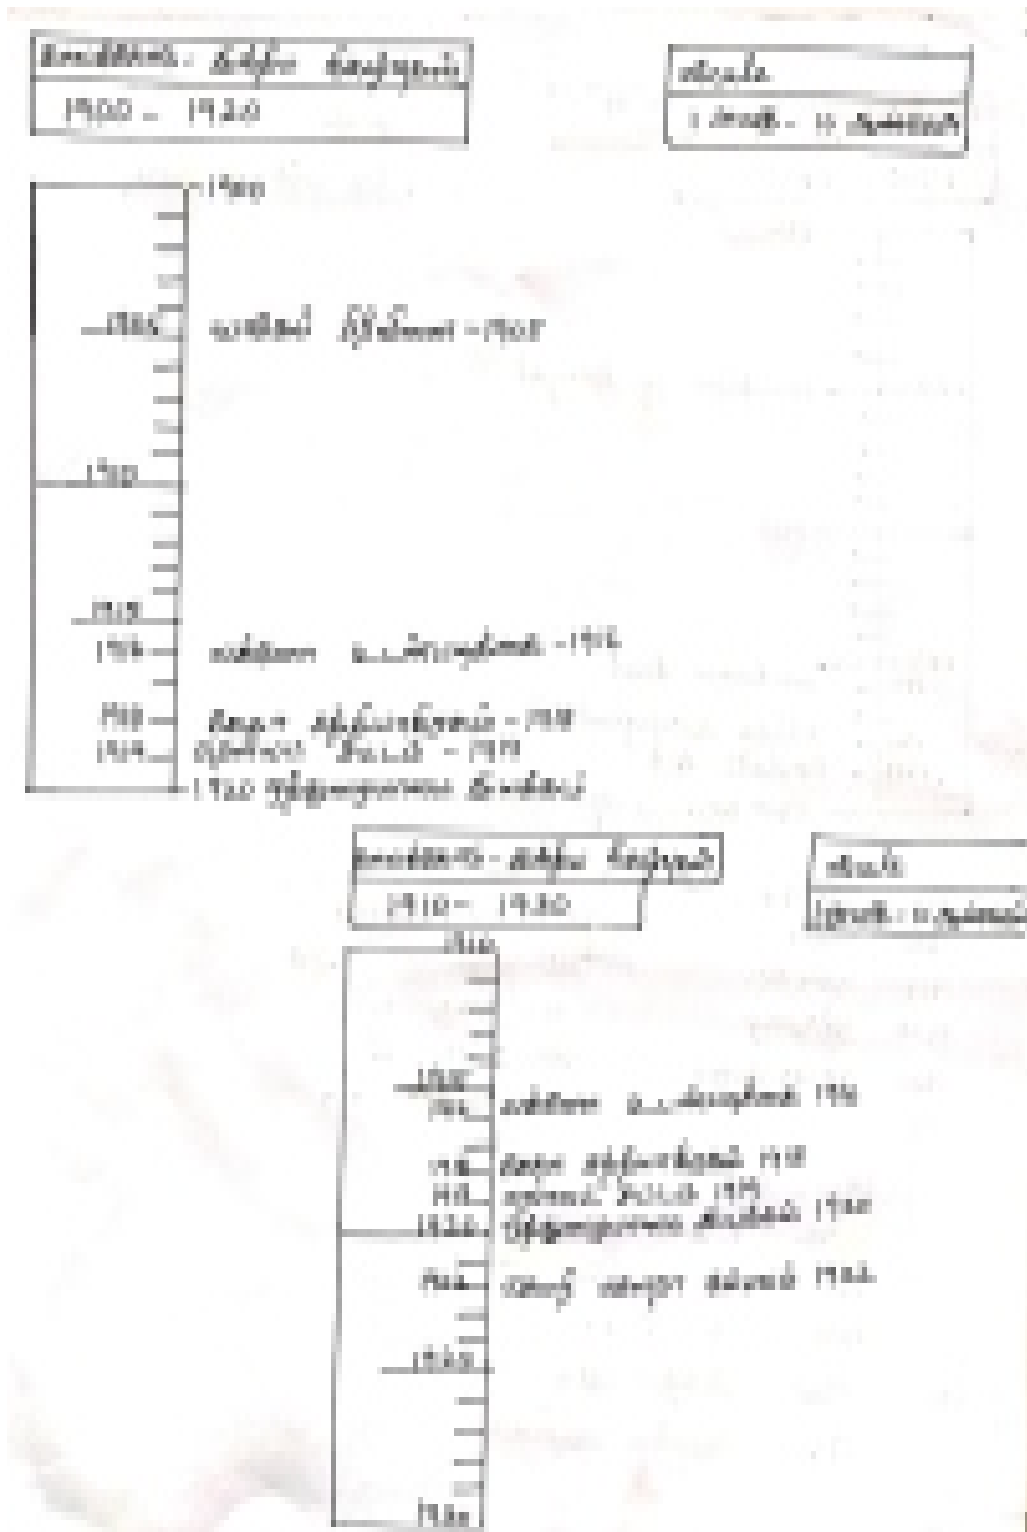 காலக்கோடு - இந்திய நிகழ்வுகள்
1900 - 1920
அளவை
1 செ.மீ - 10 ஆண்டுகள்
1900
1905 வங்கப் பிரிவினை - 1905
1910
1915
1916 லக்னோ உடன்படிக்கை - 1916
1918 - 1918
1919 ரௌலட் சட்டம் - 1919
1920 ஒத்துழையாமை இயக்கம்
காலக்கோடு - இந்திய நிகழ்வுகள்
1910 - 1930
அளவை
1 செ.மீ - 10 ஆண்டுகள்
1910
1915
1916 லக்னோ உடன்படிக்கை 1916
1918 1918
1919 ரௌலட் சட்டம் 1919
1920 ஒத்துழையாமை இயக்கம் 1920
1922 சௌரி சௌரா சம்பவம் 1922
1925
1930